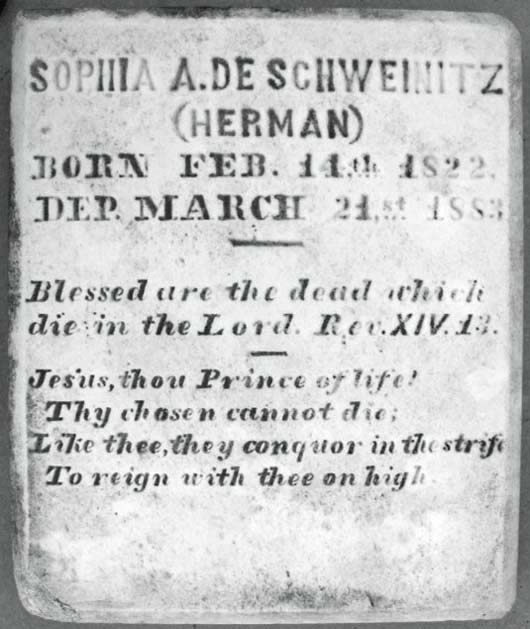 SOPHIA A. DE SCHWEINITZ
(HERMAN)
BORN FEB. 14th 1822.
DEP. MARCH 21,st 1883
Blessed are the dead which
die in the Lord. Rev. XIV. 13.
Jesus, thou Prince of life!
Thy chosen cannot die;
Like thee, they conquor in the strife
To reign with thee on high.